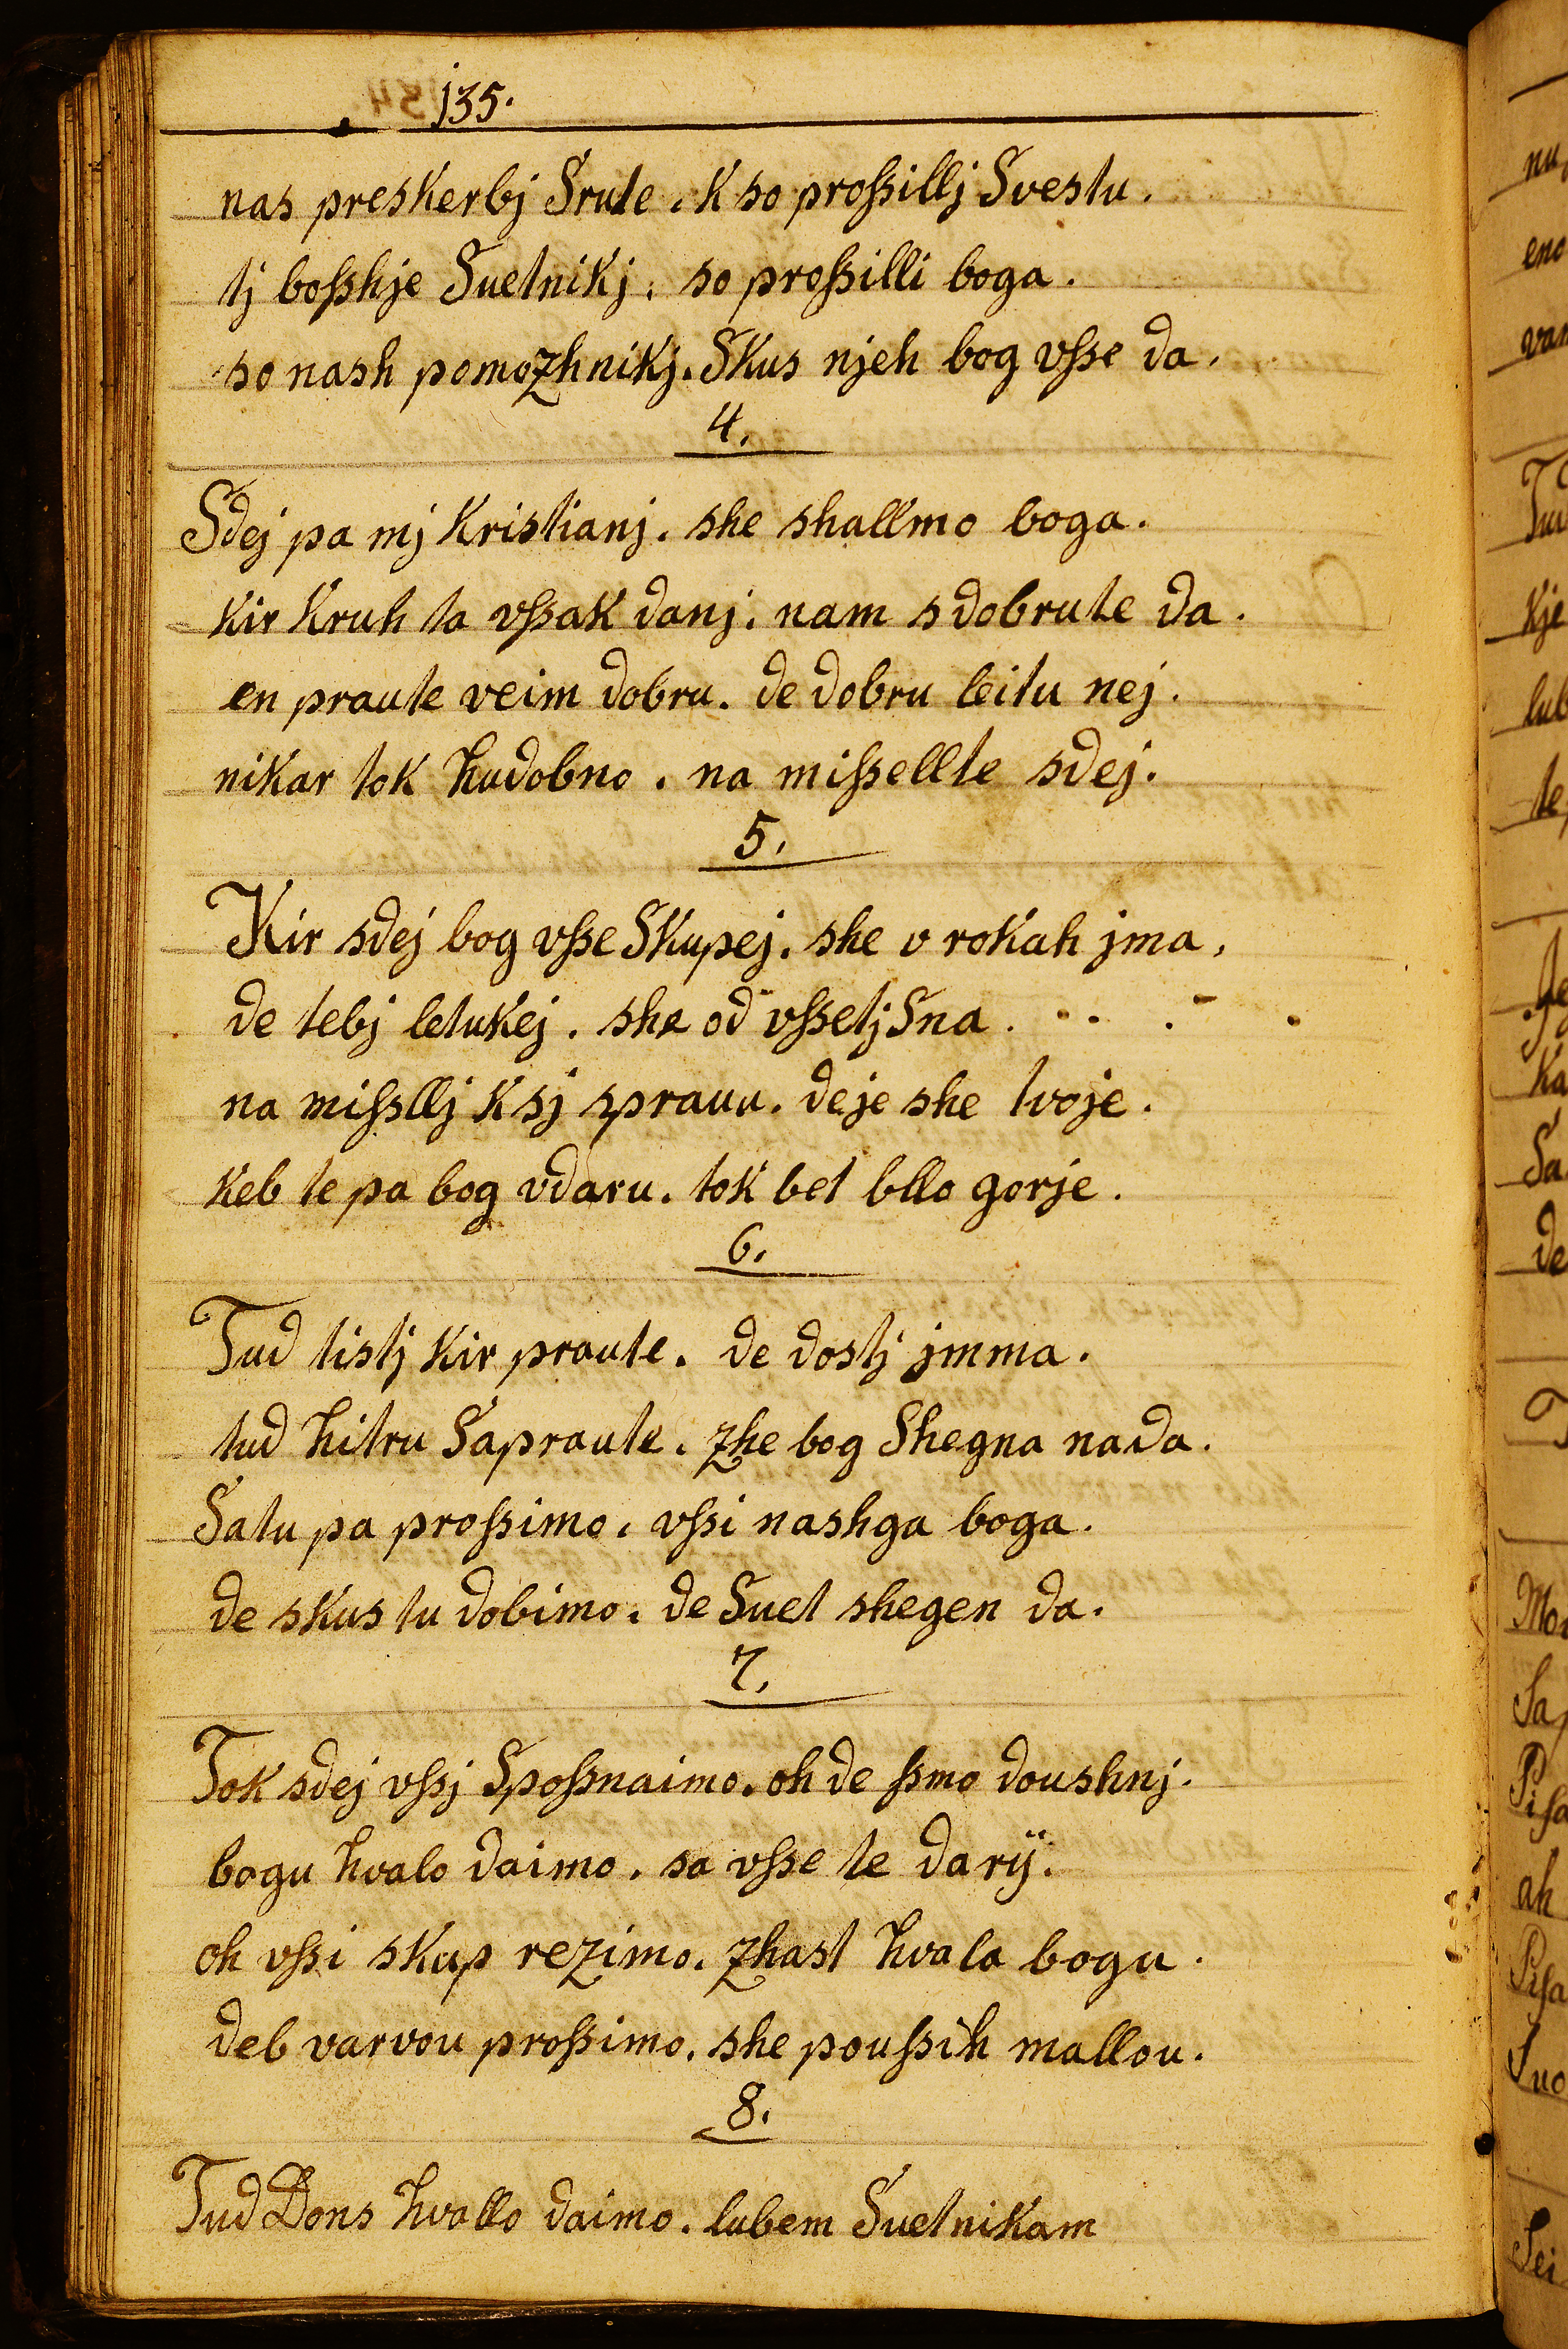 135.
nas preskerbj Srute. K so proſsillj Svestu.
tj boſshje Suetnikj. so proſsilli boga.
so nash pomozhnikj. Skus njeh bog vſse da.
4.
Sdej pa mj Kristianj. she shallmo boga.
Kir Kruh ta vſsak danj. nam s dobrute da.
en praute veim dobru. de dobru leitu nej.
nikar tok hudobno. na miſsellte sdej.
5.
Kir sdej bog vſse Skupej. she v rokah jma,
de tebj letukej. she od vſsetj Sna. . . . . .
na miſsllj K sj sprauu. de je she tvoje.
keb te pa bog vdaru. tok bet bllo gorje.
6.
Tud tistj Kir praute. de dostj jmma.
tud hitru Sapraute. zhe bog Shegna nada.
Satu pa proſsimo. vſsi nashga boga.
de skus tu dobimo. de Suet shegen da.
7.
Tok sdej vſsj Spoſsnaimo. oh de ſsmo doushnj.
bogu hvalo daimo. sa vſse te darÿ.
oh vſsi skup rezimo. zhast hvala bogu.
deb varvou proſsimo. she pouſsih mallou.
8.
Tud Dons hvallo daimo. lubem Suetnikam
nu
eno
var
Kje
lub
te
Ka
Sa
de
Mo
Sa
Piſa
ah
Piſa
Suo
Sei